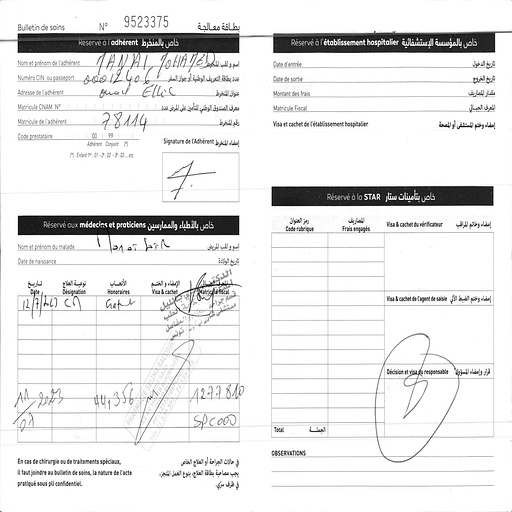 Bulletin de soins N° 9523375 بطاقة معالجة
Réservé à l'adhérent خاص بالمنخرط
Nom et prénom de l'adhérent MOHAMED إسم و لقب المنخرط
Numéro CIN ou passeport عدد بطاقة التعريف الوطنية أو جواز السفر
Adresse de l'adhérent عنوان المنخرط
Matricule CNAM N° معرف الصندوق الوطني للتأمين على المرض عدد
Matricule de l'adhérent 78114 رقم المنخرط
Code prestataire 00 99
Adhérent Conjoint (*)
(*) : Enfant 1er : 01 - 2è : 02 - 3è : 03 ... etc
Signature de l'Adhérent إمضاء المنخرط
Réservé aux médecins et praticiens خاص بالأطباء والممارسين
Nom et prénom du malade إسم و لقب المريض
Date de naissance تاريخ الولادة
تاريخ نوعية العلاج الأتعاب الإمضاء و الختم
Date Désignation Honoraires Visa & cachet Matricule fiscal
44,356 1277810
2023 SPC000
En cas de chirurgie ou de traitements spéciaux,
il faut joindre au bulletin de soins, la nature de l'acte
pratiqué sous pli confidentiel.
في حالات الجراحة أو العلاج الخاص
يجب مصاحبة بطاقة العلاج، بنوع العمل المنجز،
في ظرف سري.
Réservé à l'établissement hospitalier خاص بالمؤسسة الإستشفائية
Date d'entrée تاريخ الدخول
Date de sortie تاريخ الخروج
Montant des frais مقدار المصاريف
Matricule Fiscal المعرف الجبائي
Visa et cachet de l'établissement hospitalier إمضاء وختم المستشفى أو المصحة
Réservé à la STAR خاص بتأمينات ستار
رمز العنوان المصاريف
Code rubrique Frais engagés
Visa & cachet du vérificateur إمضاء وخاتم المراقب
Visa & cachet de l'agent de saisie إمضاء وختم الضبط الآلي
Décision et visa du responsable قرار وإمضاء المسؤول
Total الجملة
OBSERVATIONS